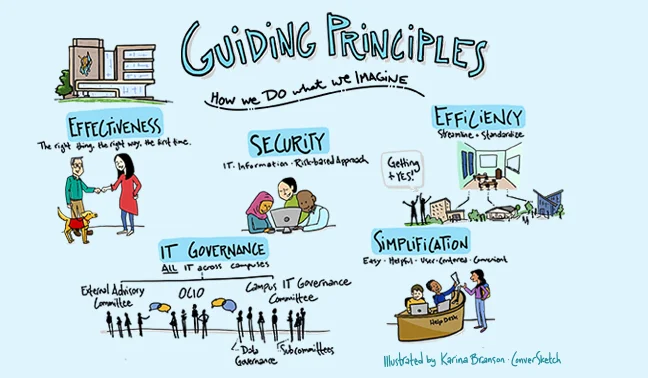 GUIDING PRINCIPLES
HOW WE DO WHAT WE IMAGINE
EFFECTIVENESS
The right thing, the right way, the first time.
SECURITY
IT · Information · Risk-based Approach
EFFICIENCY
Streamline + Standardize
Getting
to YES!
IT GOVERNANCE
ALL IT across campuses
External Advisory
Committee
OCIO
Campus IT Governance
Committee
Data
Governance
Subcommittees
SIMPLIFICATION
Easy · Helpful · User-Centered · Convenient
Help Desk
Illustrated by Karina Branson · ConverSketch